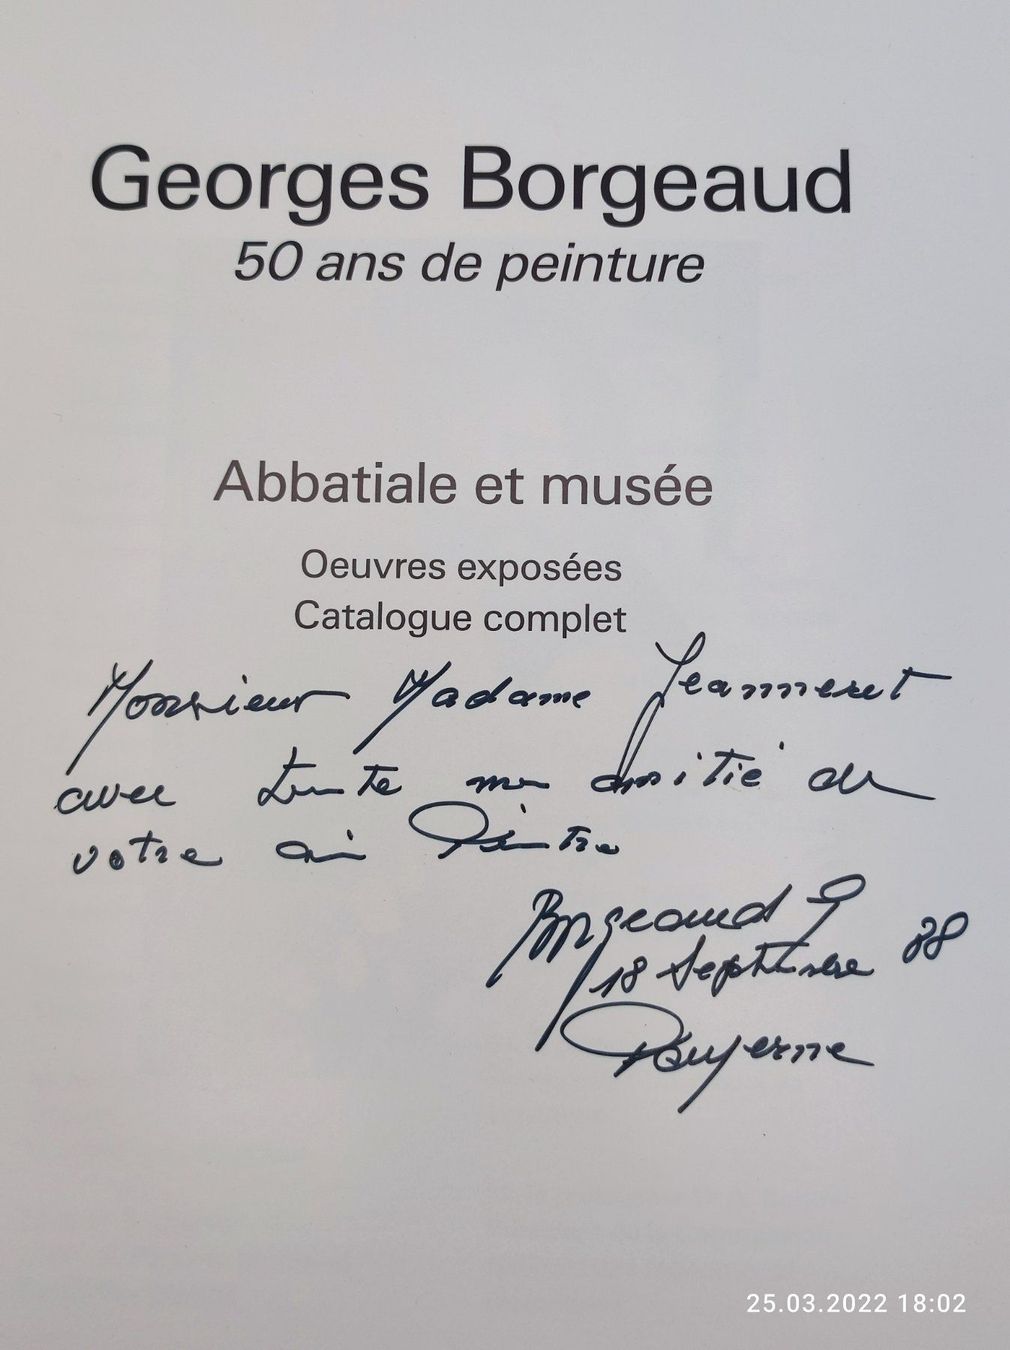 Georges Borgeaud
50 ans de peinture
Abbatiale et musée
Oeuvres exposées
Catalogue complet
Monsieur Madame Jeanneret
avec toute mon amitié de
votre ami Peintre
Borgeaud G
18 Septembre 88
Payerne
25.03.2022 18:02